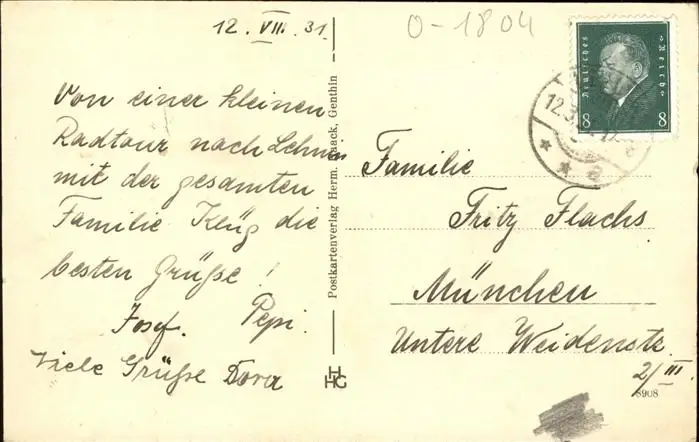 12. VIII. 31.
O-1804
Von einer kleinen
Radtour nach Lehnin
mit der gesamten
Familie Klug die
besten Grüße!
Josef. Pepi.
Viele Grüße Dora
Postkartenverlag Herm. Haack, Genthin
HHG
Deutsches Reich
8 8
12.
Familie
Fritz Flachs
München
Untere Weidenstr.
2/III.
8908